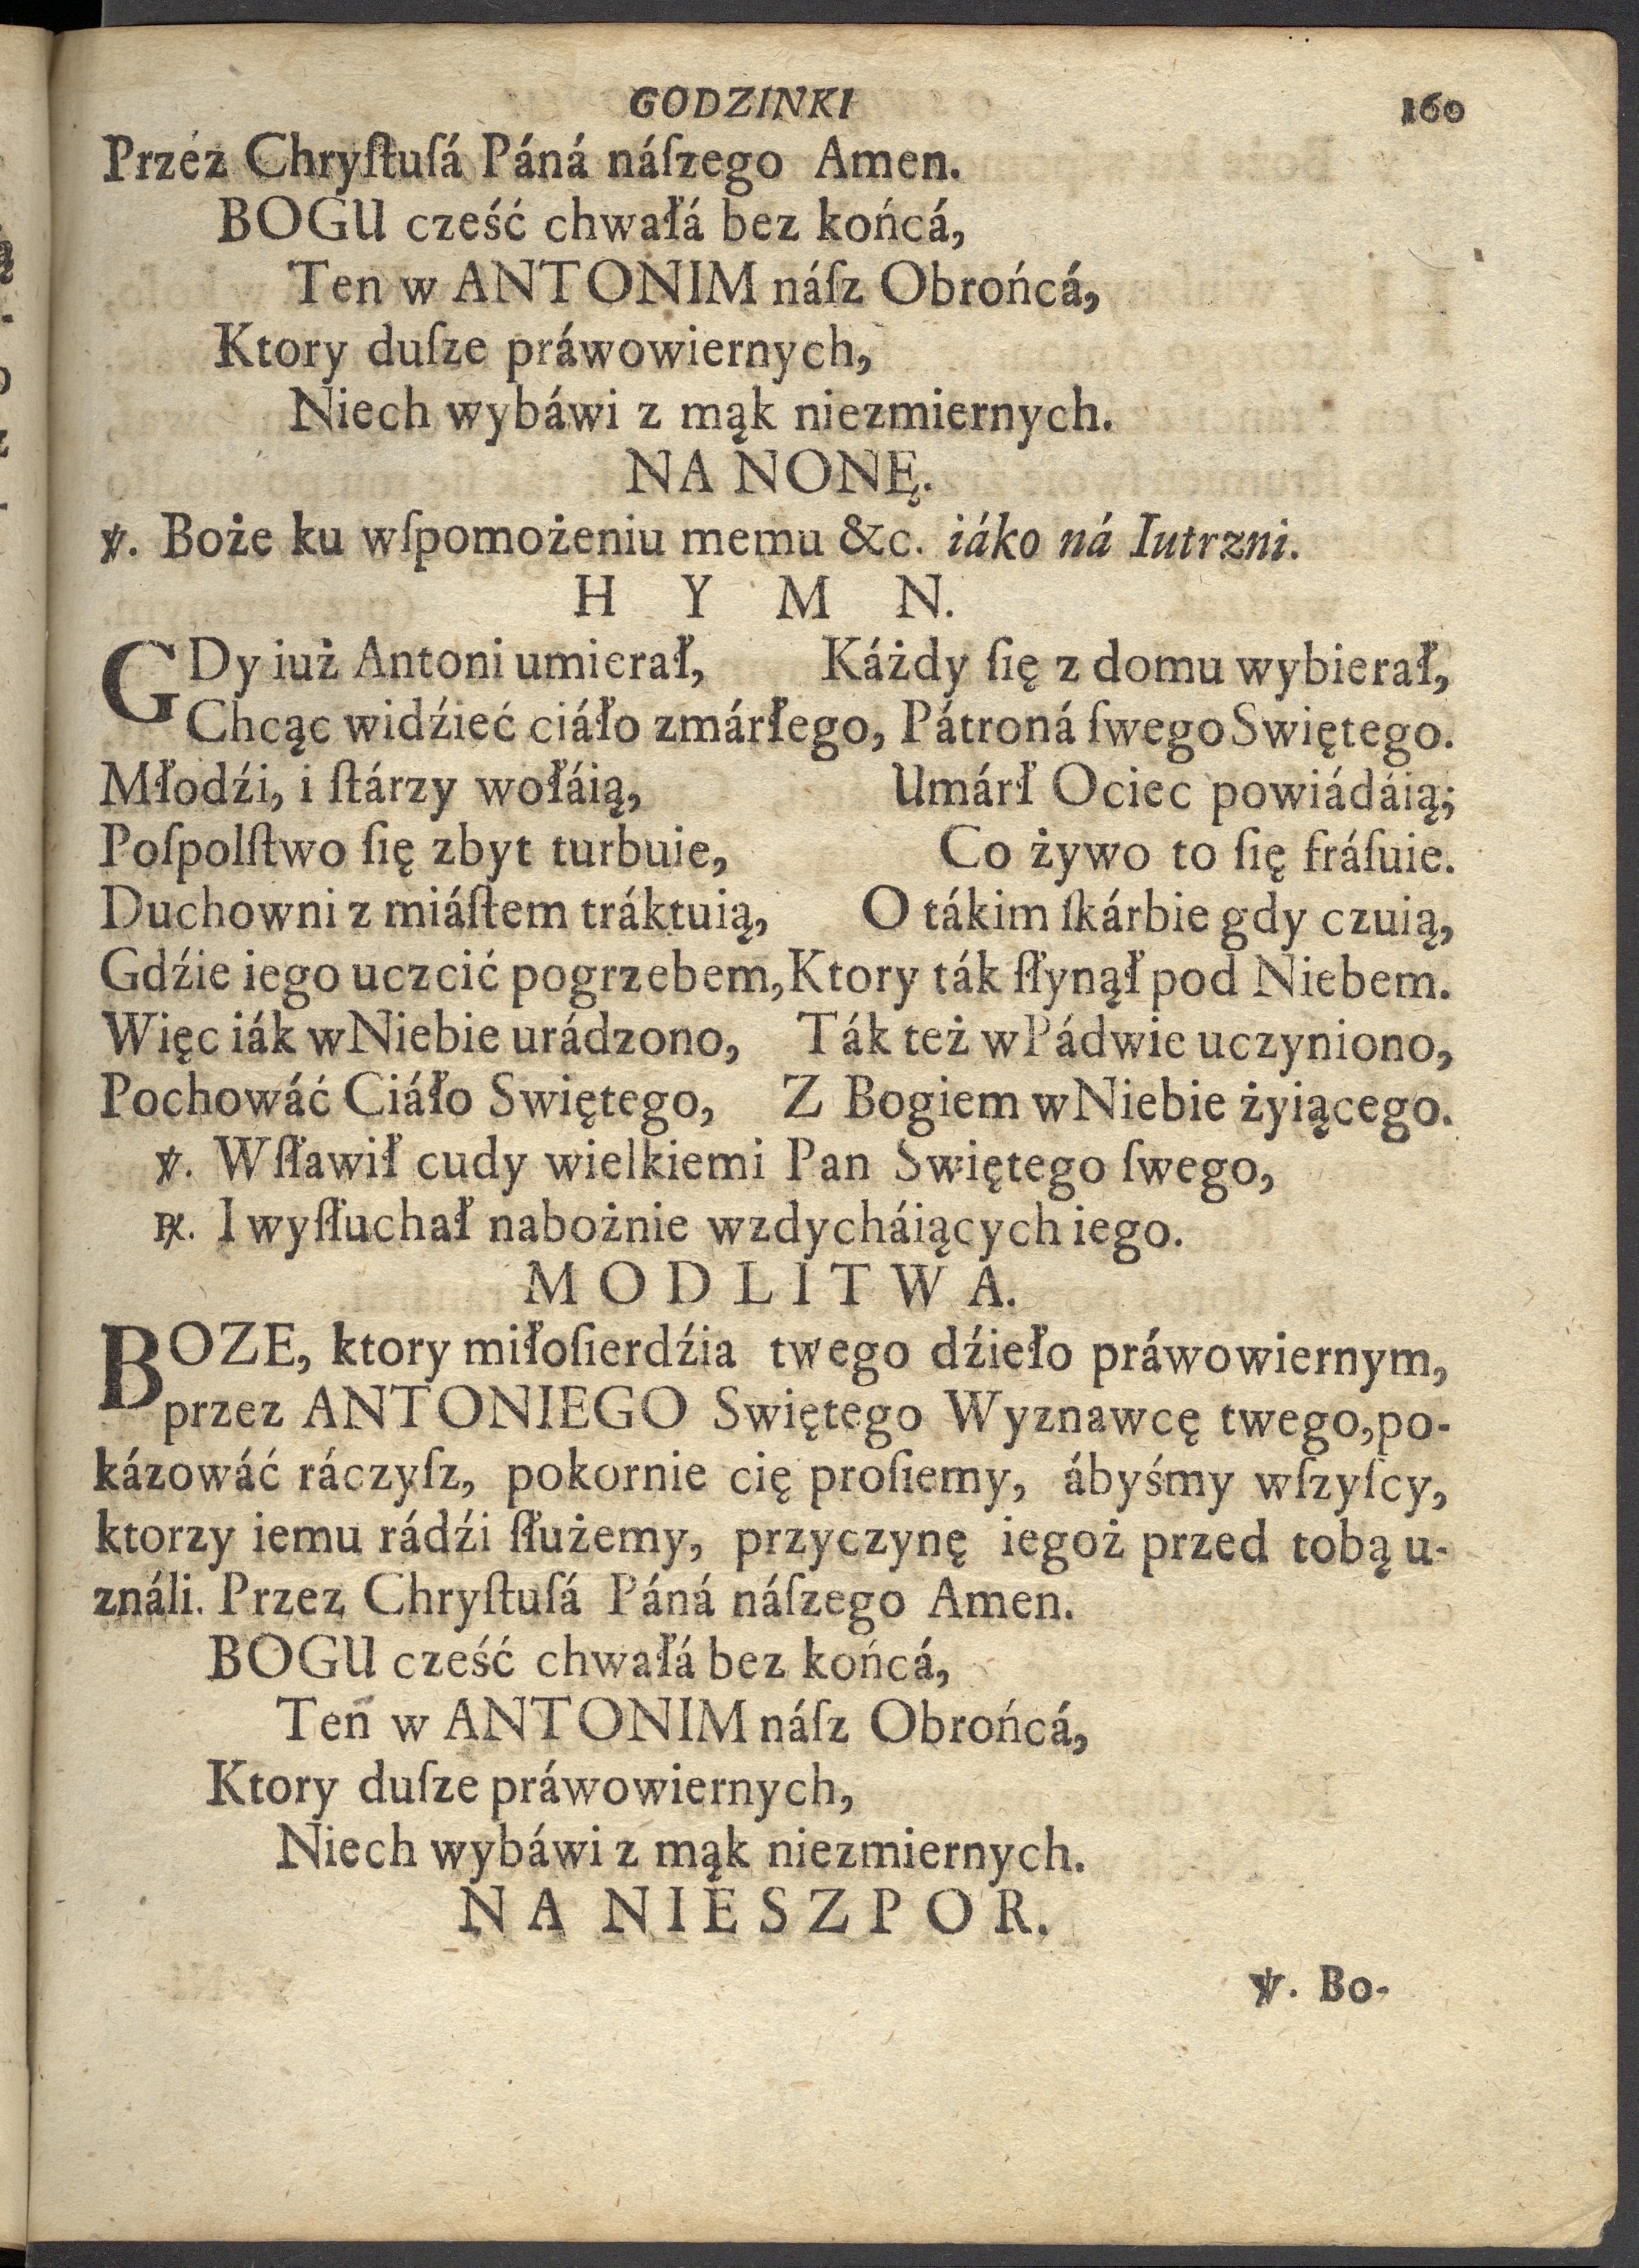 GODZINKI 160
Przez Chryſtuſá Páná náſzego Amen.
BOGU cześć chwałá bez końcá,
Ten w ANTONIM náſz Obrońcá,
Ktory duſze práwowiernych,
Niech wybáwi z mąk niezmiernych.
NA NONĘ.
℣. Boże ku wſpomożeniu memu &c. iáko ná Iutrzni.
H Y M N.
GDy iuż Antoni umierał, Káżdy ſię z domu wybierał,
Chcąc widźieć ciáło zmárłego, Pátroná ſwego Swiętego.
Młodźi, i ſtárzy wołáią, Umárł Ociec powiádáią;
Poſpolſtwo ſię zbyt turbuie, Co żywo to ſię fráſuie.
Duchowni z miáſtem tráktuią, O tákim ſkárbie gdy czuią,
Gdźie iego uczcić pogrzebem, Ktory ták ſłynął pod Niebem.
Więc iák w Niebie urádzono, Ták też w Pádwie uczyniono,
Pochowáć Ciáło Swiętego, Z Bogiem w Niebie żyiącego.
℣. Wſławił cudy wielkiemi Pan Swiętego ſwego,
℟. I wyſłuchał nabożnie wzdycháiących iego.
M O D L I T W A.
BOZE, ktory miłoſierdźia twego dźieło práwowiernym,
przez ANTONIEGO Swiętego Wyznawcę twego, po-
kázowáć ráczyſz, pokornie cię proſiemy, ábyśmy wſzyſcy,
ktorzy iemu rádźi ſłużemy, przyczynę iegoż przed tobą u-
ználi. Przez Chryſtuſá Páná náſzego Amen.
BOGU cześć chwałá bez końcá,
Ten w ANTONIM náſz Obrońcá,
Ktory duſze práwowiernych,
Niech wybáwi z mąk niezmiernych.
N A N I E S Z P O R.
℣. Bo-